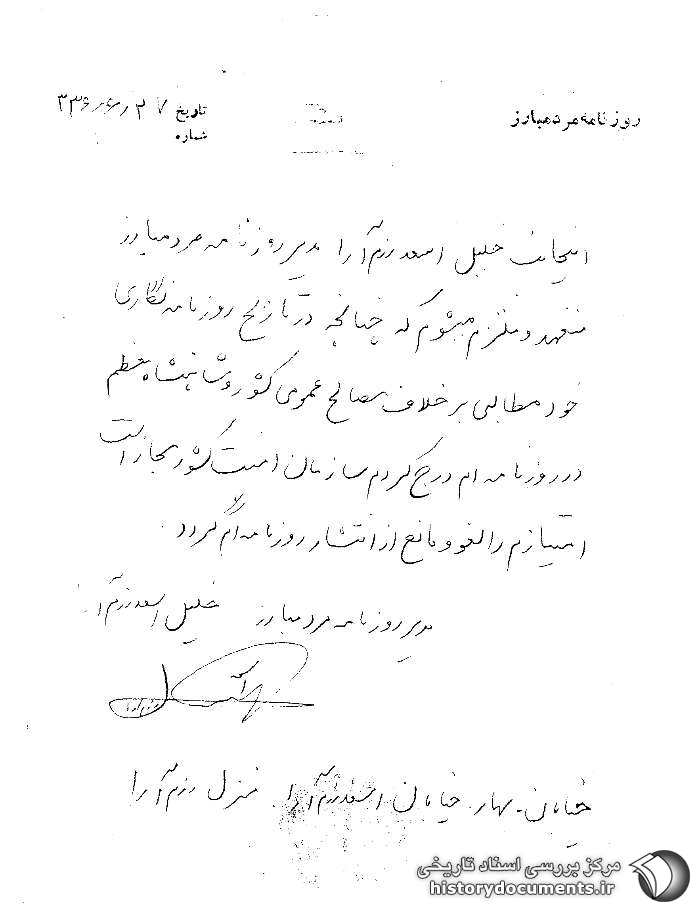 روزنامه مرد مبارز
تاریخ ۲۷ ر۶ر۳۳۶
شماره
اینجانب خلیل اسعد رزم آرا مدیر روزنامه مرد مبارز
متعهد و ملتزم میشوم که چنانچه در تاریخ روزنامه نگاری
خود مطالبی برخلاف مصالح عمومی کشور و شاهنشاه معظم
در روزنامه ام درج کردم سازمان امنیت کشور مجاز است
امتیازم را لغو و مانع از انتشار روزنامه ام گردد.
مدیر روزنامه مرد مبارز خلیل اسعد رزم آرا
خیابان بهار خیابان اسعد رزم آرا منزل رزم آرا
مرکز بررسی اسناد تاریخی
historydocuments.ir